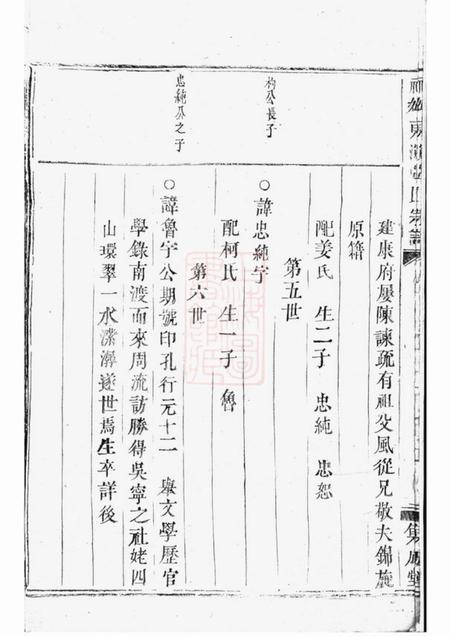 建康府屡陳諫疏有祖父風從兄敬夫錦旋
原籍
配姜氏 生二子 忠純 忠恕
第五世
杓公長子
○諱忠純字
配柯氏 生一子 魯
第六世
忠純公之子
○諱魯字公期號印孔行元十二 舉文學歷官
學錄南渡而來周流訪勝得吳寧之社姥四
山環翠一水瀠濴遂世焉生卒詳後